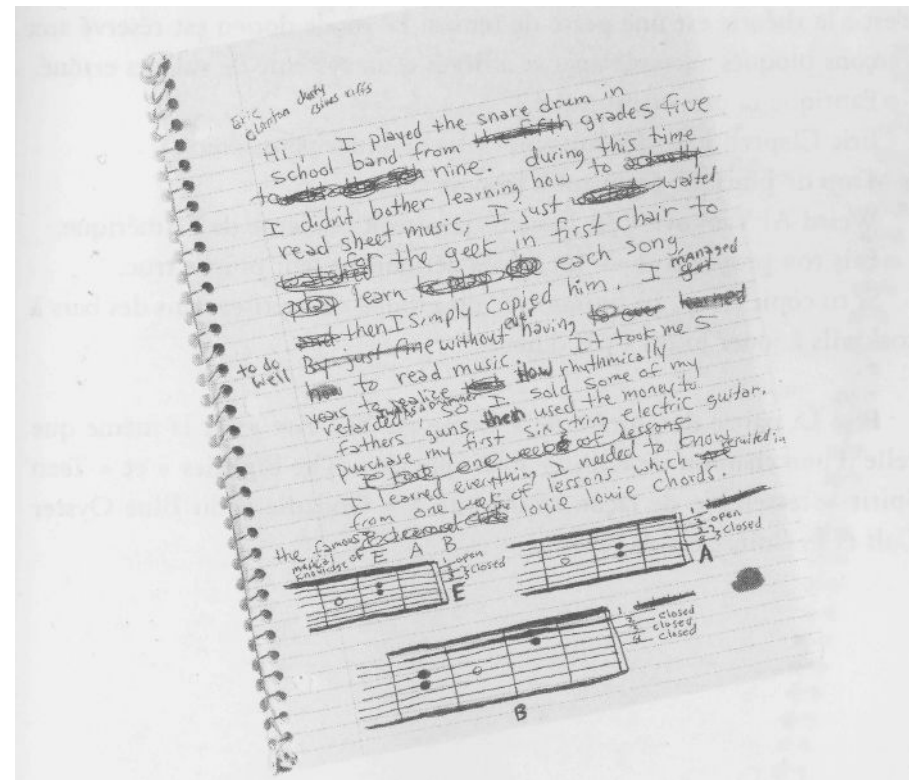 Eric
Clapton dusty
sives riffs
Hi, I played the snare drum in
school band from the fifth grades five
to nine. during this time
I didn't bother learning how to actually
read sheet music, I just waited
for the geek in first chair to
learn to play each song
and then I simply copied him. I managed
to do well By just fine without ever having to ever learned
to read music. It took me 5
years to realize How rhythmically
retarded I was as a drummer so I sold some of my
fathers guns then used the money to
purchase my first six string electric guitar.
I took one week of lessons
I learned everything I needed to know
from one week of lessons which resulted in
the famous musical knowledge of louie louie chords.
E A B
1 open
2
3 closed
E
1
2 open
3 closed
A
1
closed
closed
closed
B